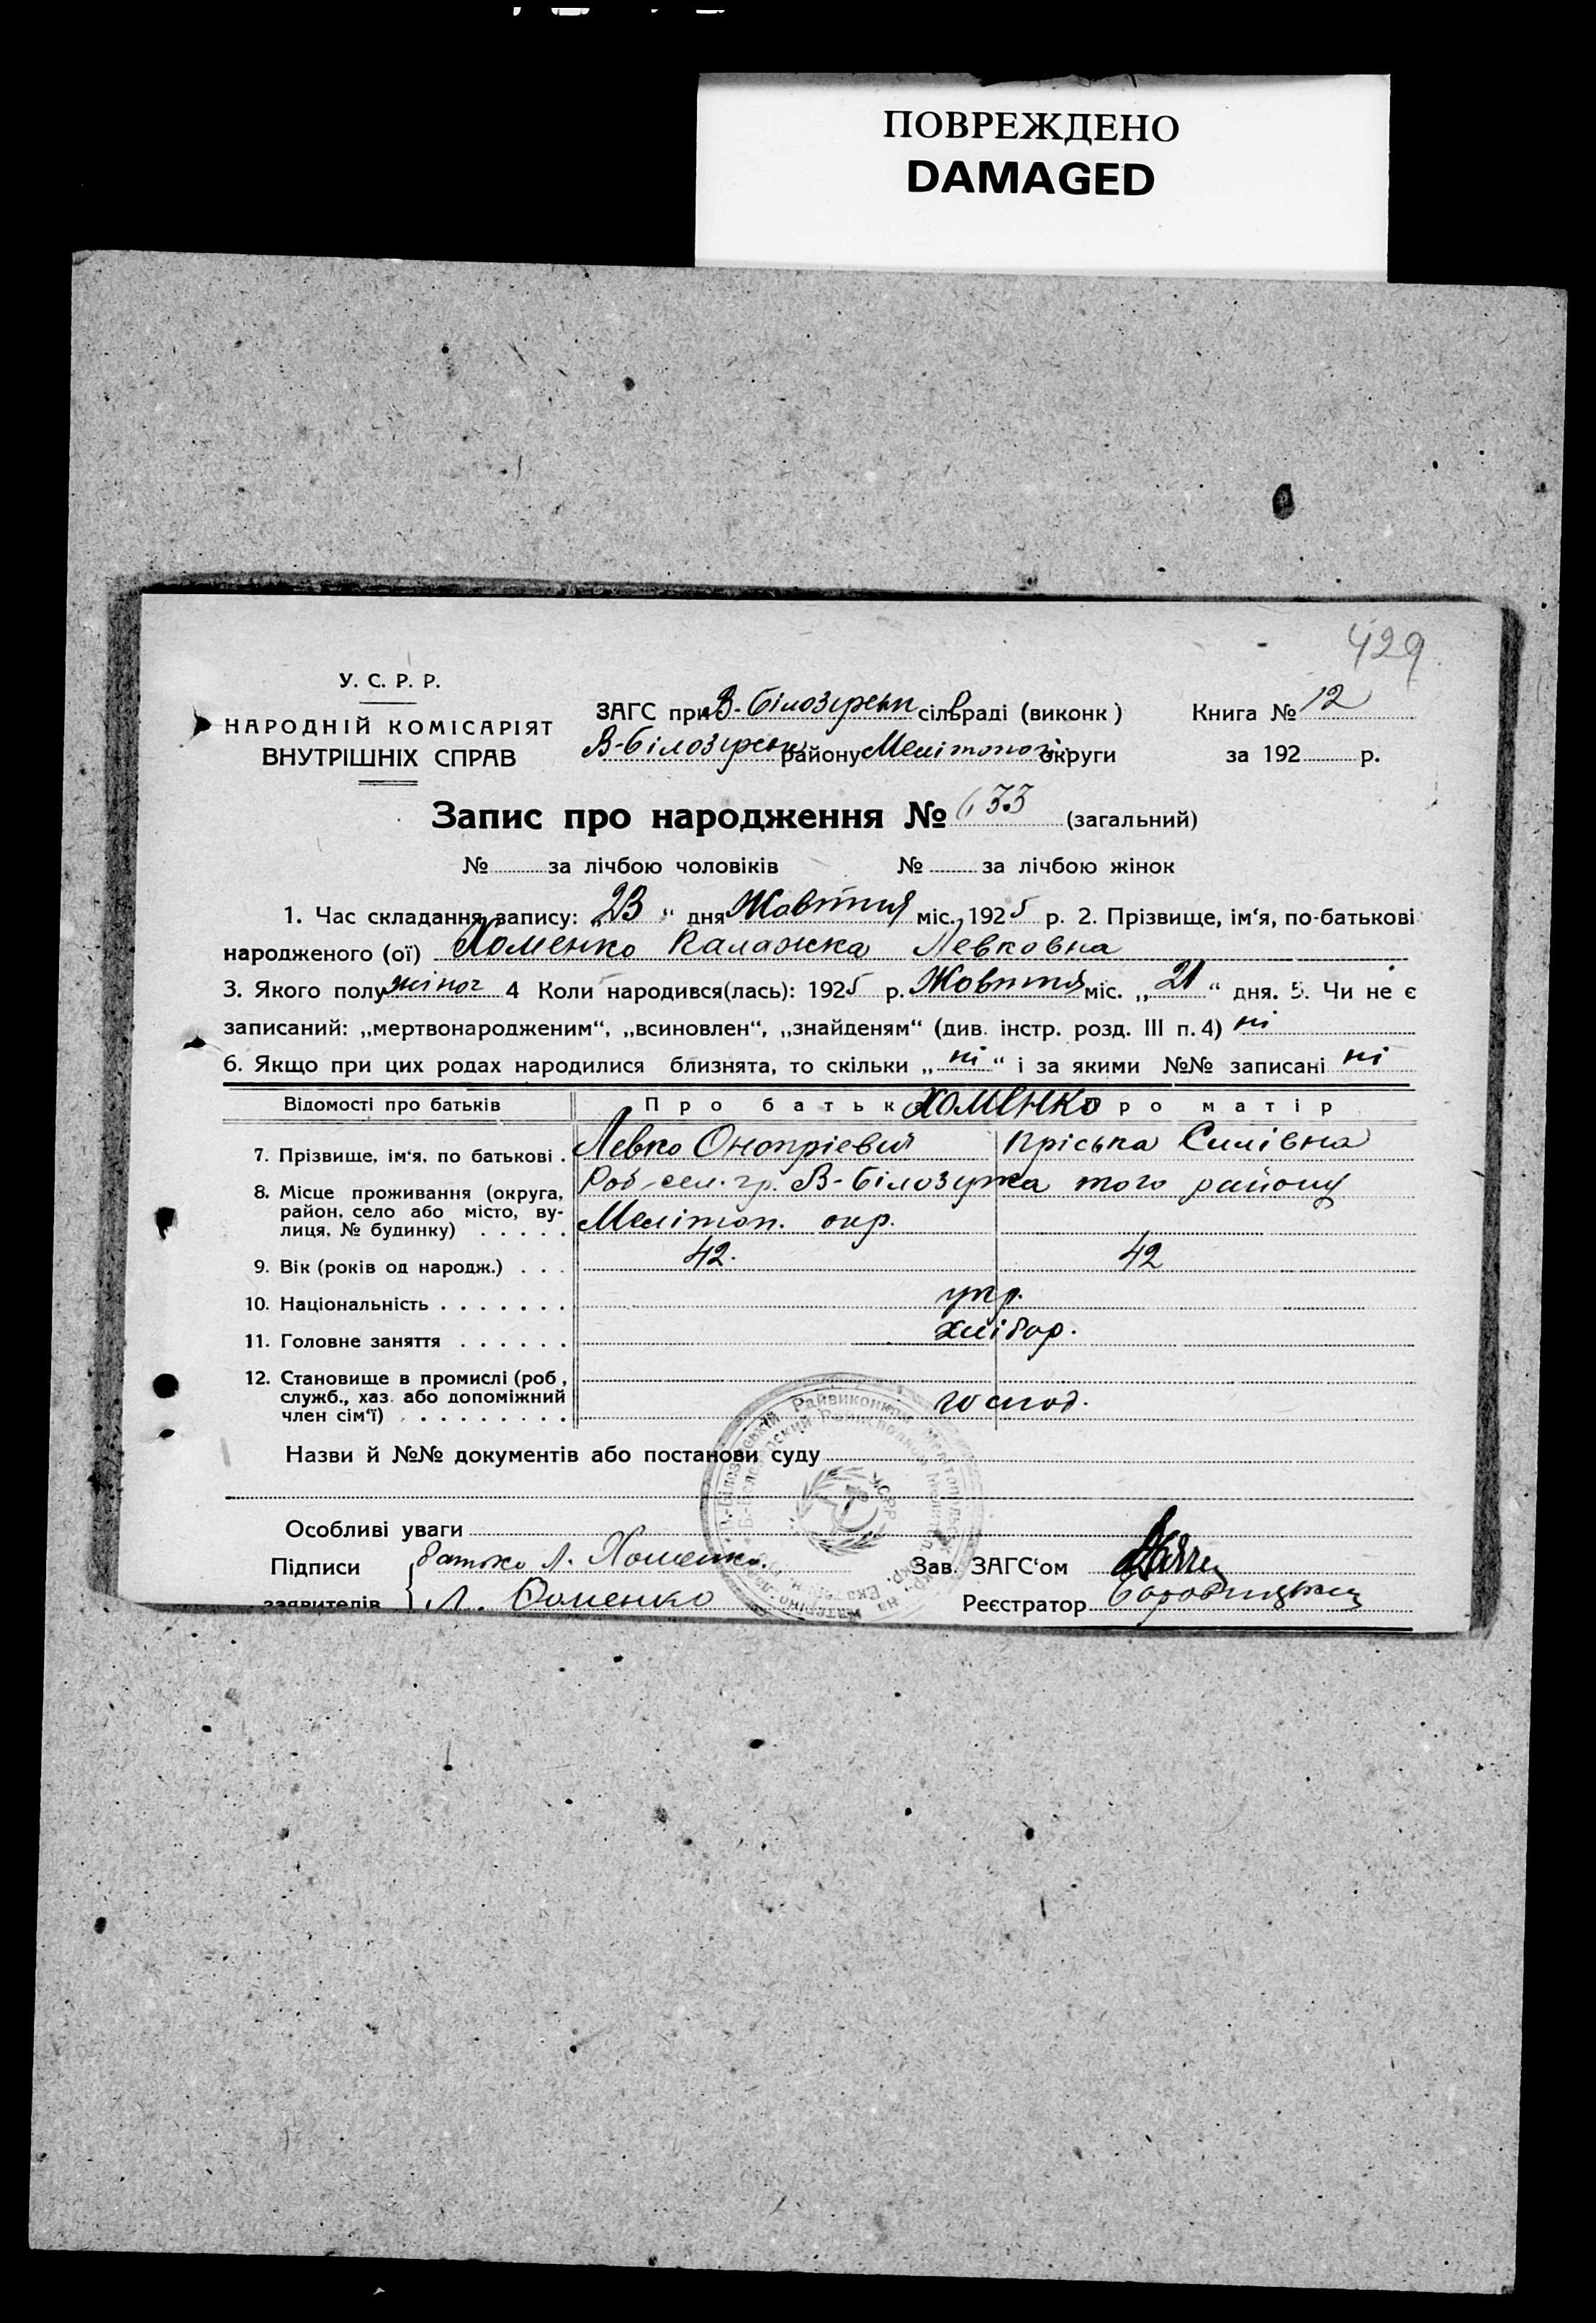 ПОВРЕЖДЕНО
DAMAGED
429
У. С. Р. Р.
НАРОДНІЙ КОМІСАРІЯТ
ВНУТРІШНІХ СПРАВ
ЗАГС при В-Білозірськ сільраді (виконк) Книга № 12
В-Білозірськ району Меліто округи за 192 р.
Запис про народження № 633 (загальний)
№ за лічбою чоловіків № за лічбою жінок
1. Час складання запису: „23“ дня Жовтня міс. 1925 р. 2. Прізвище, ім‘я, по-батькові
народженого (ої) Хоменко Калажка Левковна
3. Якого полу жіноч 4 Коли народився(лась): 1925 р. Жовтня міс. „21“ дня. 5. Чи не є
записаний: „мертвонародженим“, „всиновлен“, „знайденям“ (див. інстр. розд. III п. 4) ні
6. Якщо при цих родах народилися близнята, то скільки „ні“ і за якими №№ записані ні
Відомості про батьків Про батьк Хоменко ро матір
7. Прізвище, ім‘я, по батькові . Левко Онопріевич Пріська Силівна
8. Місце проживання (округа, Роб-сел. гр. В-Білозірка того району
район, село або місто, ву-
лиця, № будинку) . . . . . Мелітоп. окр.
9. Вік (років од народж.) . . . 42. 42
10. Національність . . . . . . . укр.
11. Головне заняття . . . . . . хлібор.
12. Становище в промислі (роб,
служб., хаз. або допоміжний
член сім‘ї) . . . . . . . . господ.
Назви й №№ документів або постанови суду
Особливі уваги
Підписи батько Л. Хоменко. Зав. ЗАГС‘ом
заявителів Л. Хоменко Реєстратор